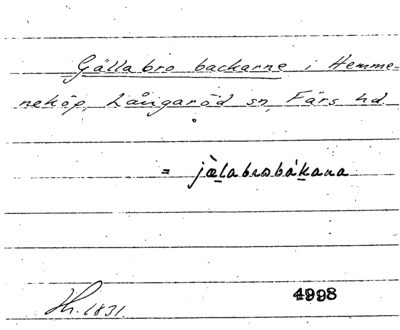 Gällabro backarne i Hemme-
neköp, Långaröd sn, Färs hd.
= jälabrobákana
Hr. 1831. 4998